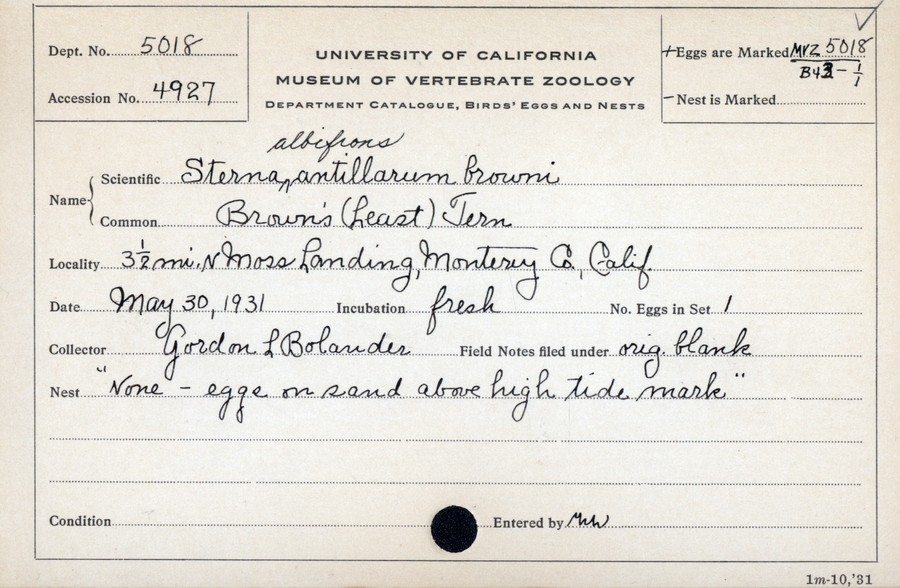 Dept. No. 5018
Accession No. 4927
UNIVERSITY OF CALIFORNIA
MUSEUM OF VERTEBRATE ZOOLOGY
DEPARTMENT CATALOGUE, BIRDS' EGGS AND NESTS
+Eggs are Marked MVZ 5018
B43-1/1
-Nest is Marked
albifrons
Name Scientific Sterna ‸ antillarum browni
Common Brown's (Least) Tern
Locality 3 1/2 mi. N Moss Landing, Monterey Co., Calif.
Date May 30, 1931 Incubation fresh No. Eggs in Set 1
Collector Gordon L Bolander Field Notes filed under orig. blank
Nest "None - eggs on sand above high tide mark"
Condition Entered by
1m-10,'31